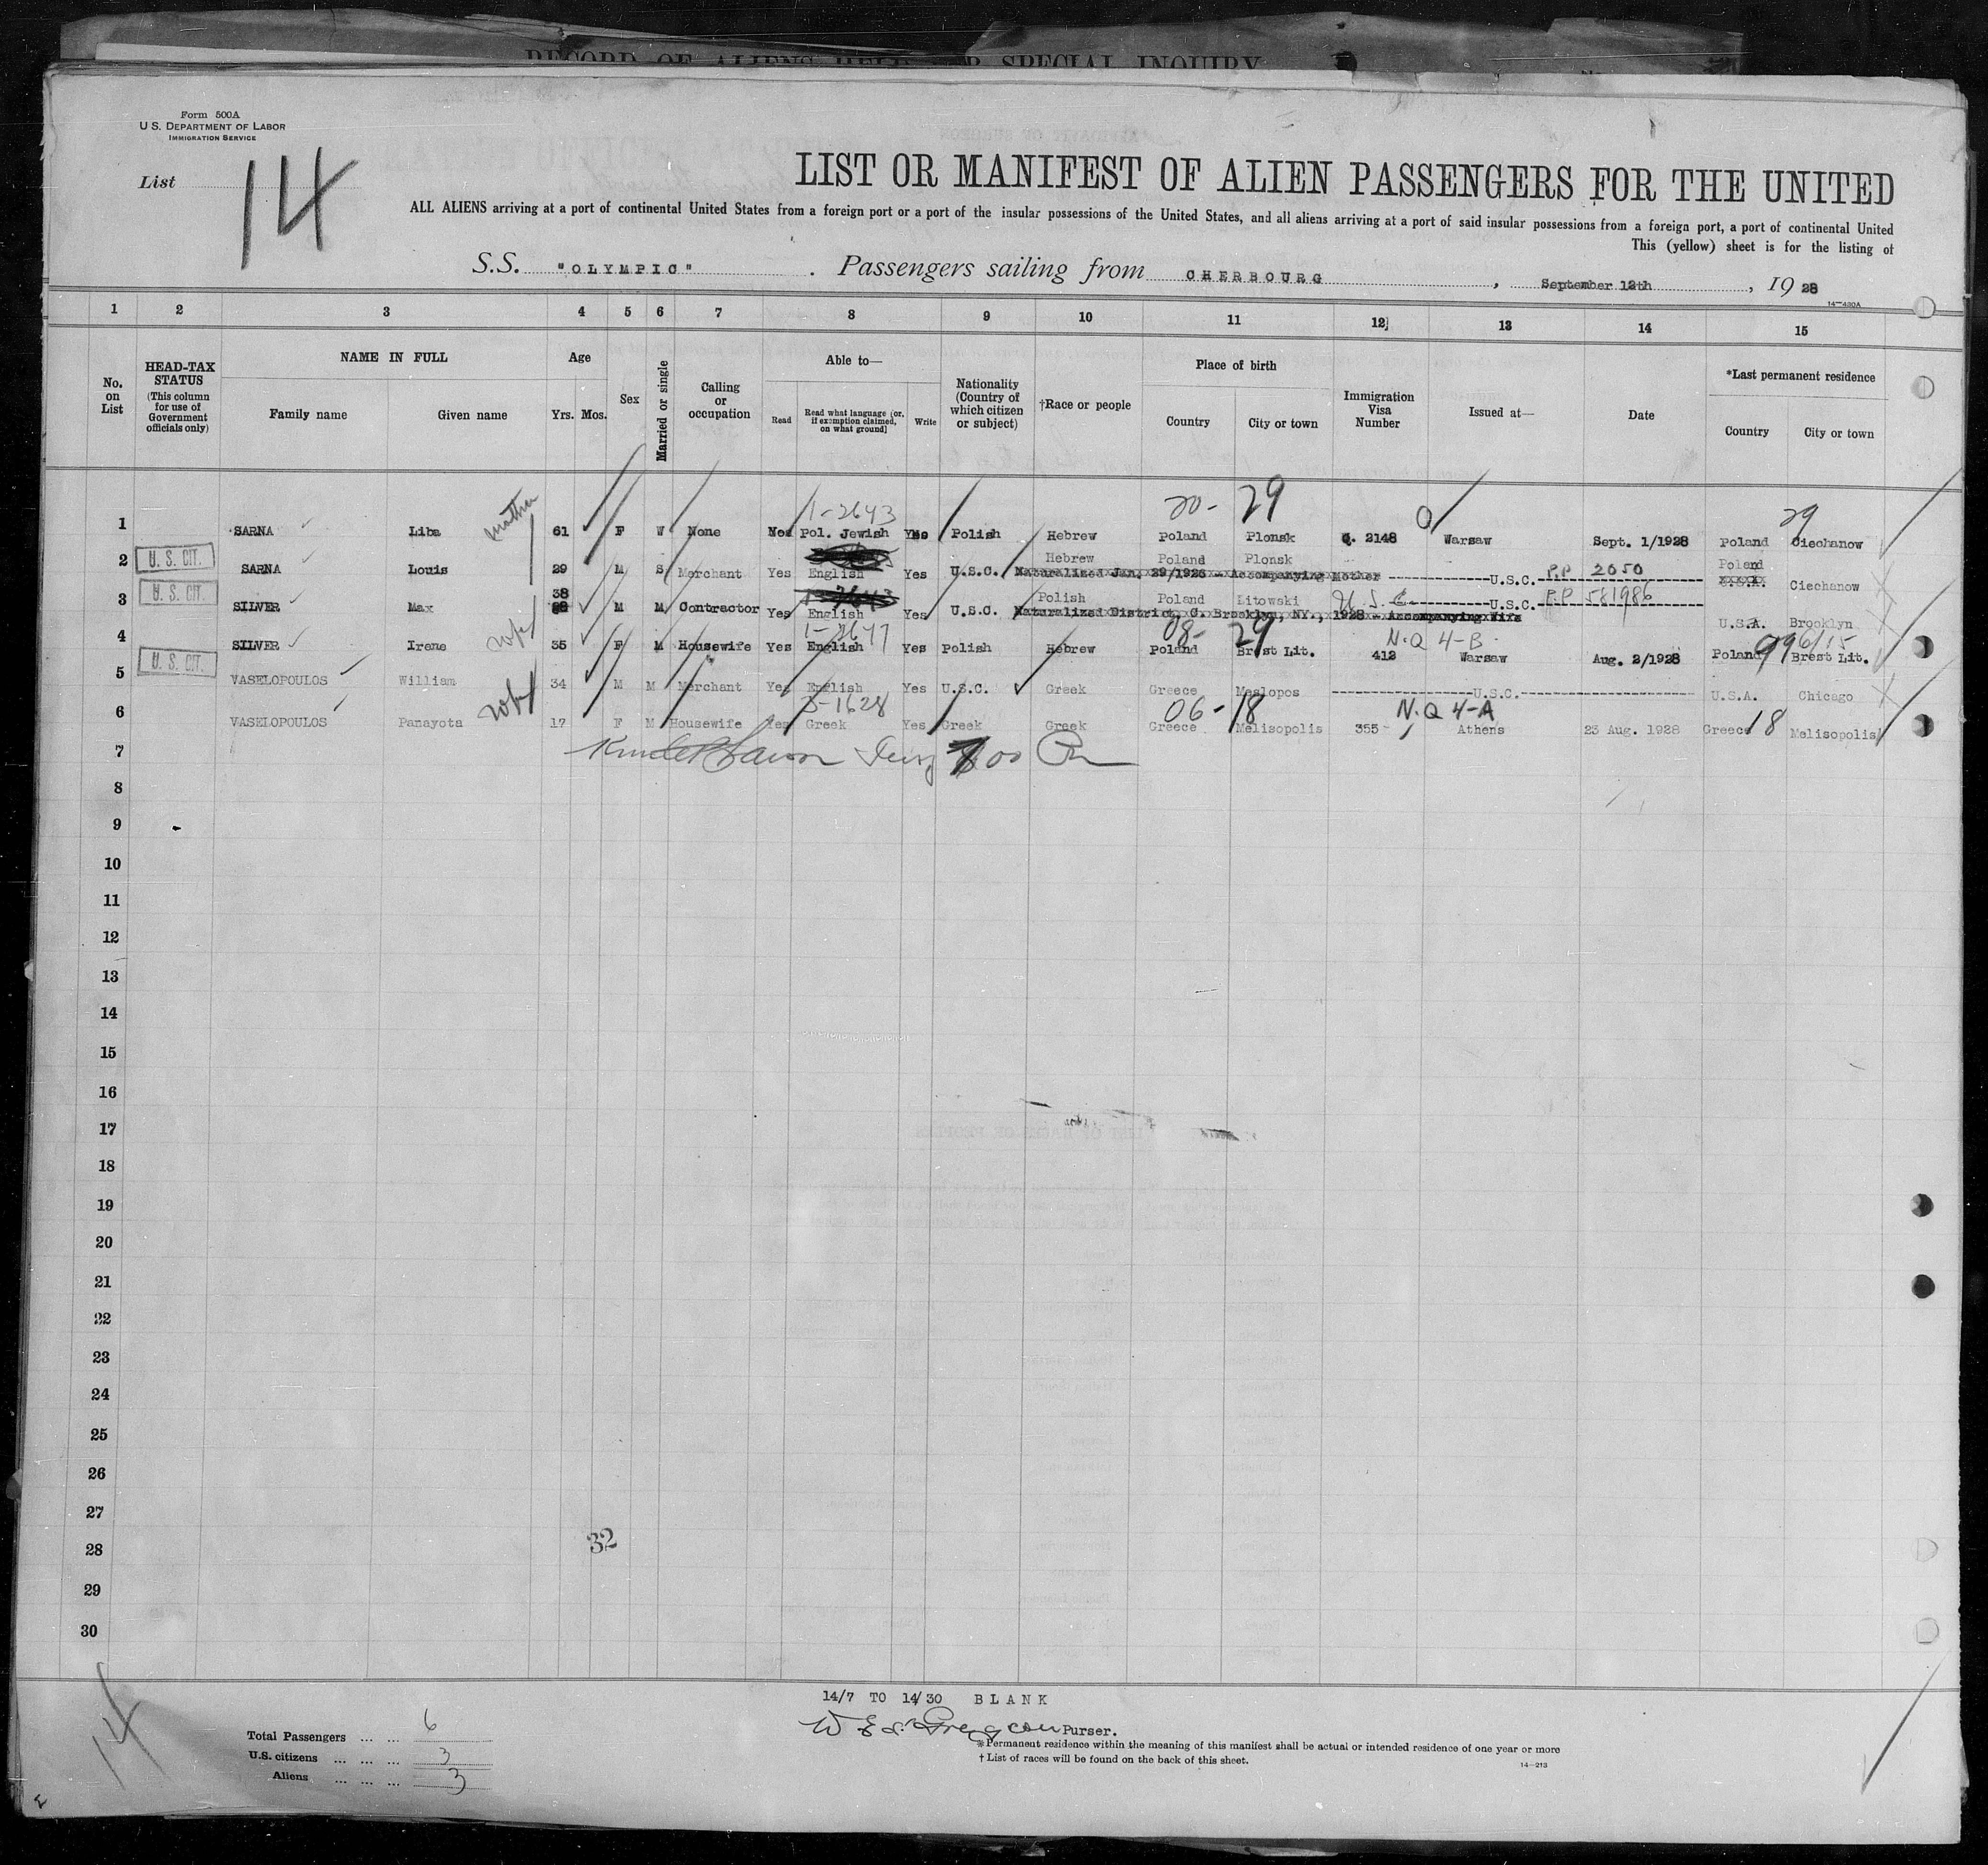 RECORD OF ALIENS HELD FOR SPECIAL INQUIRY
Form 500A
U. S. DEPARTMENT OF LABOR
IMMIGRATION SERVICE
List 14
LIST OR MANIFEST OF ALIEN PASSENGERS FOR THE UNITED
ALL ALIENS arriving at a port of continental United States from a foreign port or a port of the insular possessions of the United States, and all aliens arriving at a port of said insular possessions from a foreign port, a port of continental United
This (yellow) sheet is for the listing of
S.S. "OLYMPIC" . Passengers sailing from CHERBOURG , September 12th , 19 28
14—430A
1 2 3 4 5 6 7 8 9 10 11 12 13 14 15
No. on List
HEAD-TAX STATUS (This column for use of Government officials only)
NAME IN FULL
Family name Given name
Age
Yrs. Mos.
Sex
Married or single
Calling or occupation
Able to—
Read Read what language [or, if exemption claimed, on what ground] Write
Nationality (Country of which citizen or subject)
†Race or people
Place of birth
Country City or town
Immigration Visa Number
Issued at—
Date
*Last permanent residence
Country City or town
mother 1-2643 20- 29 29
1 SARNA Liba 61 F W None Pol. Jewish Polish Hebrew Poland Plonsk Q. 2148 Warsaw Sept. 1/1928 Poland Ciechanow
Hebrew Poland Plonsk
2 U. S. CIT. SARNA Louis 29 M S Merchant Yes English Yes U.S.C. Naturalized Jan. 29/1926 - Accompanying Mother U.S.C. P.P 2050 Poland Ciechanow
Polish Poland Litowski U.S.C.
3 U. S. CIT. SILVER Max 38 M M Contractor Yes English Yes U.S.C. Naturalized District, C. Brooklyn, NY., 1928 - Accompanying Wife U.S.C. P.P 581986 U.S.A. Brooklyn
wife 08- 29 N.Q 4-B
4 SILVER Irene 35 F M Housewife Yes English Yes Polish Hebrew Poland Brest Lit. 412 Warsaw Aug. 2/1928 Poland Brest Lit.
5 U. S. CIT. VASELOPOULOS William 34 M M Merchant Yes English Yes U.S.C. Greek Greece Meslopos U.S.C. U.S.A. Chicago
wife 06-18 N.Q 4-A
6 VASELOPOULOS Panayota 17 F M Housewife Yes Greek Yes Greek Greek Greece Melisopolis 355 Athens 23 Aug. 1928 Greece 18 Melisopolis
7
8
9
10
11
12
13
14
15
16
17
18
19
20
21
22
23
24
25
26
27
32
28
29
30
14
14/7 TO 14/30 BLANK
Purser.
Total Passengers ... ... 6
U.S. citizens ... ... ... 3
Aliens ... ... ... 3
*Permanent residence within the meaning of this manifest shall be actual or intended residence of one year or more
† List of races will be found on the back of this sheet.
14—213